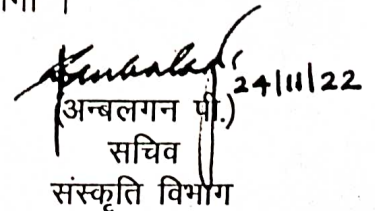 24/11/22
(अन्बलगन पी.)
सचिव
संस्कृति विभाग